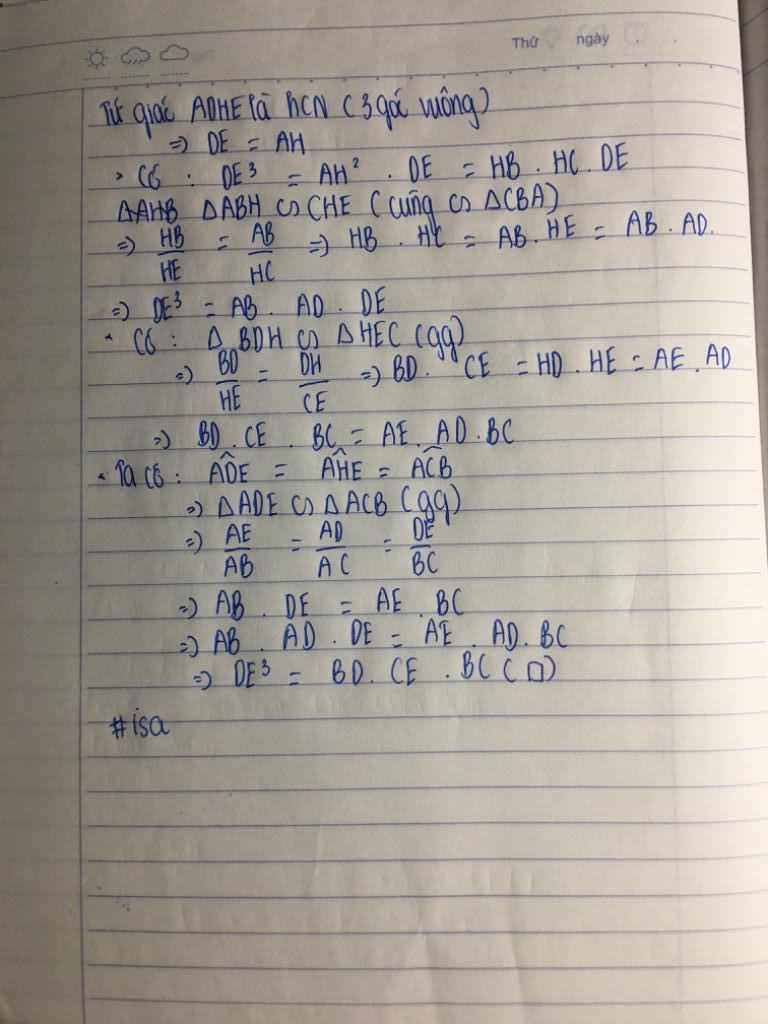 Thứ ngày
Tứ giác ADHE là hCN (3 góc vuông)
=> DE = AH
Có : DE³ = AH² . DE = HB . HC . DE
ΔAHB ΔABH ∽ CHE (cùng ∽ ΔCBA)
=> HB/HE = AB/HC => HB . HC = AB . HE = AB . AD.
=> DE³ = AB . AD . DE
• Có : Δ BDH ∽ ΔHEC (gg)
=> BD/HE = DH/CE => BD . CE = HD . HE = AE . AD
=> BD . CE . BC = AE . AD . BC
• Ta có : ADE^ = AHE^ = ACB^
=> ΔADE ∽ ΔACB (gg)
=> AE/AB = AD/AC = DE/BC
=> AB . DE = AE . BC
=> AB . AD . DE = AE . AD . BC
=> DE³ = BD . CE . BC (□)
#isa